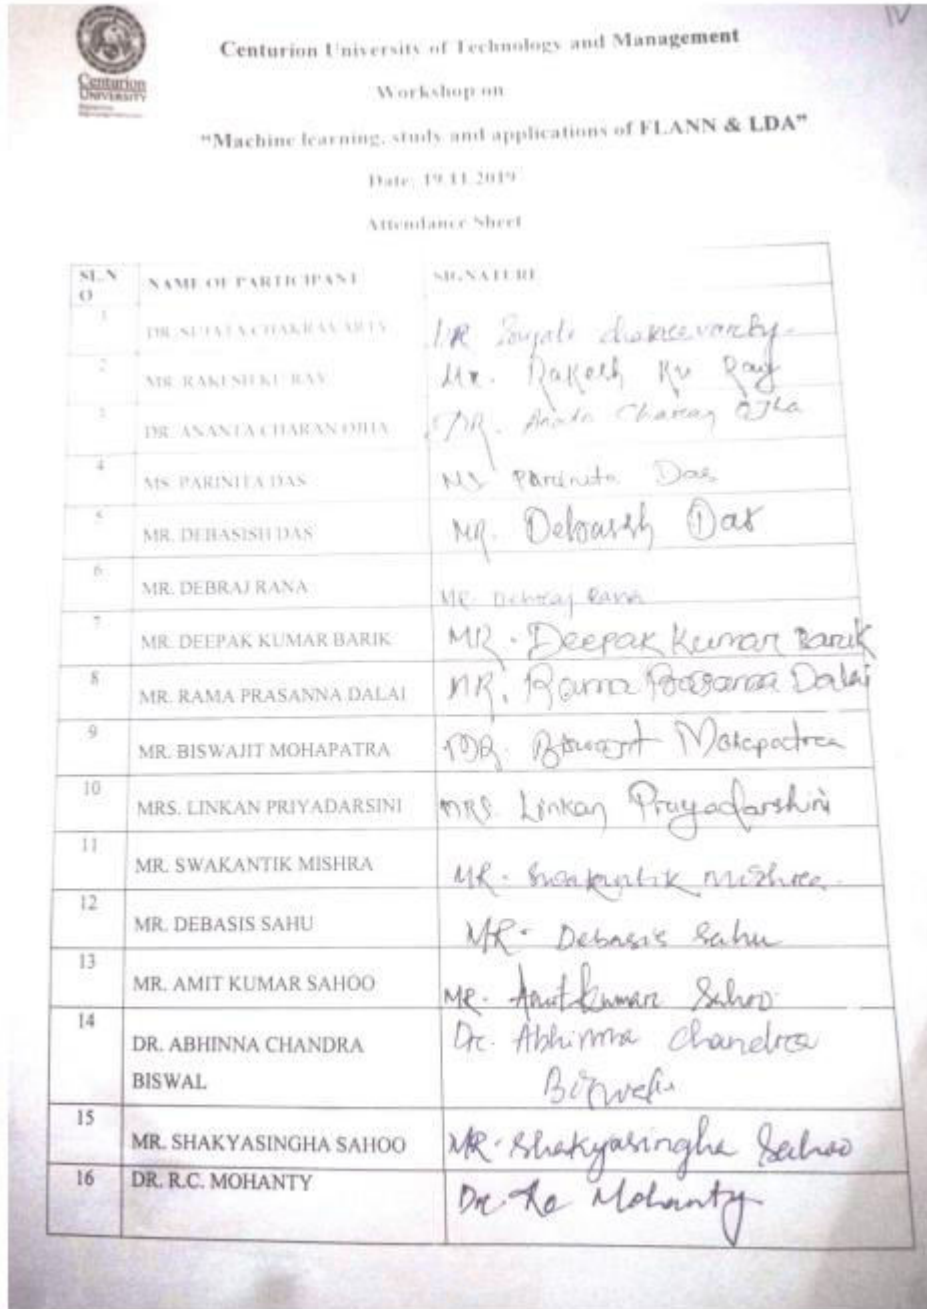 IV
Centurion
UNIVERSITY
Centurion University of Technology and Management
Workshop on
"Machine learning, study and applications of FLANN & LDA"
Date: 19.11.2019
Attendance Sheet
SL.N
O
NAME OF PARTICIPANT
SIGNATURE
1
DR. SUJATA CHAKRAVARTY
DR Sujata chakravarty
2
MR. RAKESH KU RAY
Mr. Rakesh Ku Ray
3
DR. ANANTA CHARAN OJHA
DR. Ananta Charan OJha
4
MS. PARINITA DAS
MS Parinita Das
5
MR. DEBASISH DAS
MR. Debasish Das
6
MR. DEBRAJ RANA
MR. Debraj Rana
7
MR. DEEPAK KUMAR BARIK
MR. Deepak Kumar Barik
8
MR. RAMA PRASANNA DALAI
MR. Rama Prasanna Dalai
9
MR. BISWAJIT MOHAPATRA
MR. Biswajit Mohapatra
10
MRS. LINKAN PRIYADARSINI
MRS. Linkan Priyadarshini
11
MR. SWAKANTIK MISHRA
MR. Swakantik Mishra
12
MR. DEBASIS SAHU
MR. Debasis Sahu
13
MR. AMIT KUMAR SAHOO
MR. Amit Kumar Sahoo
14
DR. ABHINNA CHANDRA
BISWAL
Dr. Abhinna Chandra
Biswal
15
MR. SHAKYASINGHA SAHOO
MR. Shakyasingha Sahoo
16
DR. R.C. MOHANTY
Dr. Rc Mohanty